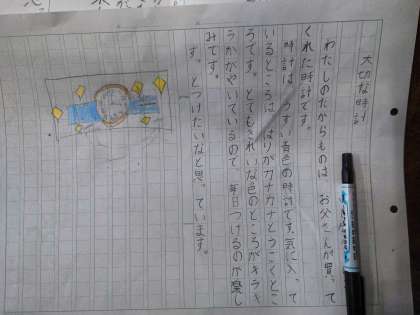 大切な時計
わたしのたからものは、お父さんが買って
くれた時計です。
時計は、うすい黄色の時計です。気に入って
いるところは、はりがカチカチとうごくとこ
ろです。とてもきれいな色のところがキラキ
ラかがやいているので、毎日つけるのが楽し
みです。
す。とつけたいなと思っています。